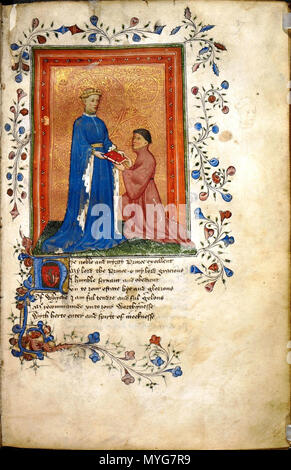 hye noble and myghty Prince excellent
My lord the Prince o my lord gracious
I humble servant and obedient
Un to your estate hye and glorious
Of whiche I am ful tendre and ful gelous
Me recomaunde unto your worthynesse
With herte enter and spirit of meeknesse